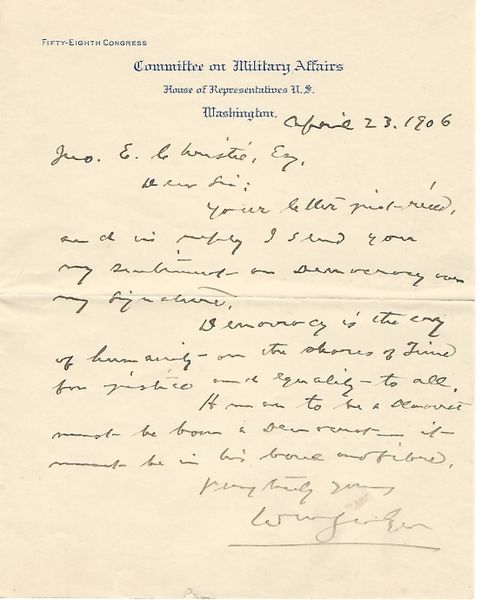 FIFTY-EIGHTH CONGRESS
Committee on Military Affairs
House of Representatives U.S.
Washington.
April 23. 1906
Jno. E. Christie, Esq,
Dear Sir:
Your letter just rec'd,
and in reply I send you
my sentiment on Democracy over
my signature.
Democracy is the cry
of humanity on the shores of Time
for justice and equality to all.
A man to be a Democrat
must be born a Democrat it
must be in his bone and fibre.
Very truly yours
Wm Sulzer